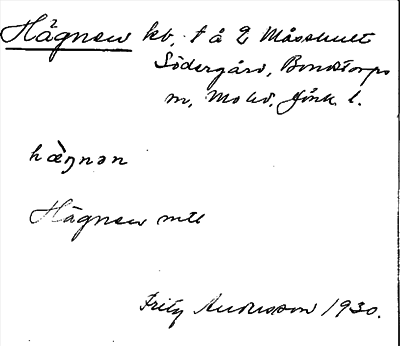 Hägnen kb, t å 2 Måsshult
Södergård, Bondstorps
sn, Mo hd, Jönk. l.
hæ̀ŋnən
Hägnen mtl
Fritz Andersson 1930.